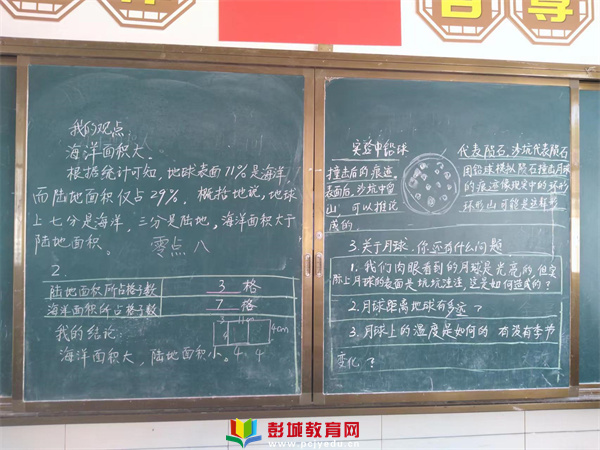 我的观点
海洋面积大。
根据统计可知,地球表面71%是海洋,
而陆地面积仅占29%。概括地说,地球
上七分是海洋,三分是陆地,海洋面积大于
陆地面积。 零点八
2.
陆地面积所占格子数 3 格
海洋面积所占格子数 7 格
我的结论:
4cm
海洋面积大,陆地面积小。4. 4
实验中铅球
撞击后的痕迹
表面后,沙坑中留
山,可以推论
成的
代表陨石,沙坑代表陨石
用铅球模拟陨石撞击月球
的痕迹像现实中的环形
环形山可能是这样形
3.关于月球,你还有什么问题
1.我们肉眼看到的月球是光亮的,但实
际上月球的表面是坑坑洼洼,这是如何造成的?
2.月球距离地球有多远?
3.月球上的温度是如何的 有没有季节
变化?
彭城教育网
www.pcjyedu.cn